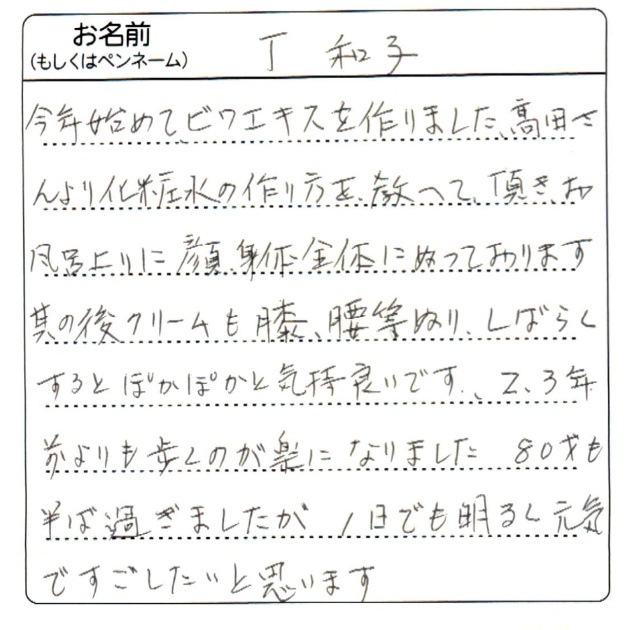 お名前
(もしくはペンネーム)
丁 和子
今年始めて、ビワエキスを作りました、高田さ
んより化粧水の作り方を、教へて、頂き、お
風呂上りに顔、身体全体にぬっております
其の後クリームも膝、腰等ぬり、しばらく
するとぽかぽかと気持良いです、2、3年
前よりも歩くのが楽になりました 80才も
半ば過ぎましたが 1日でも明るく元気
ですごしたいと思います